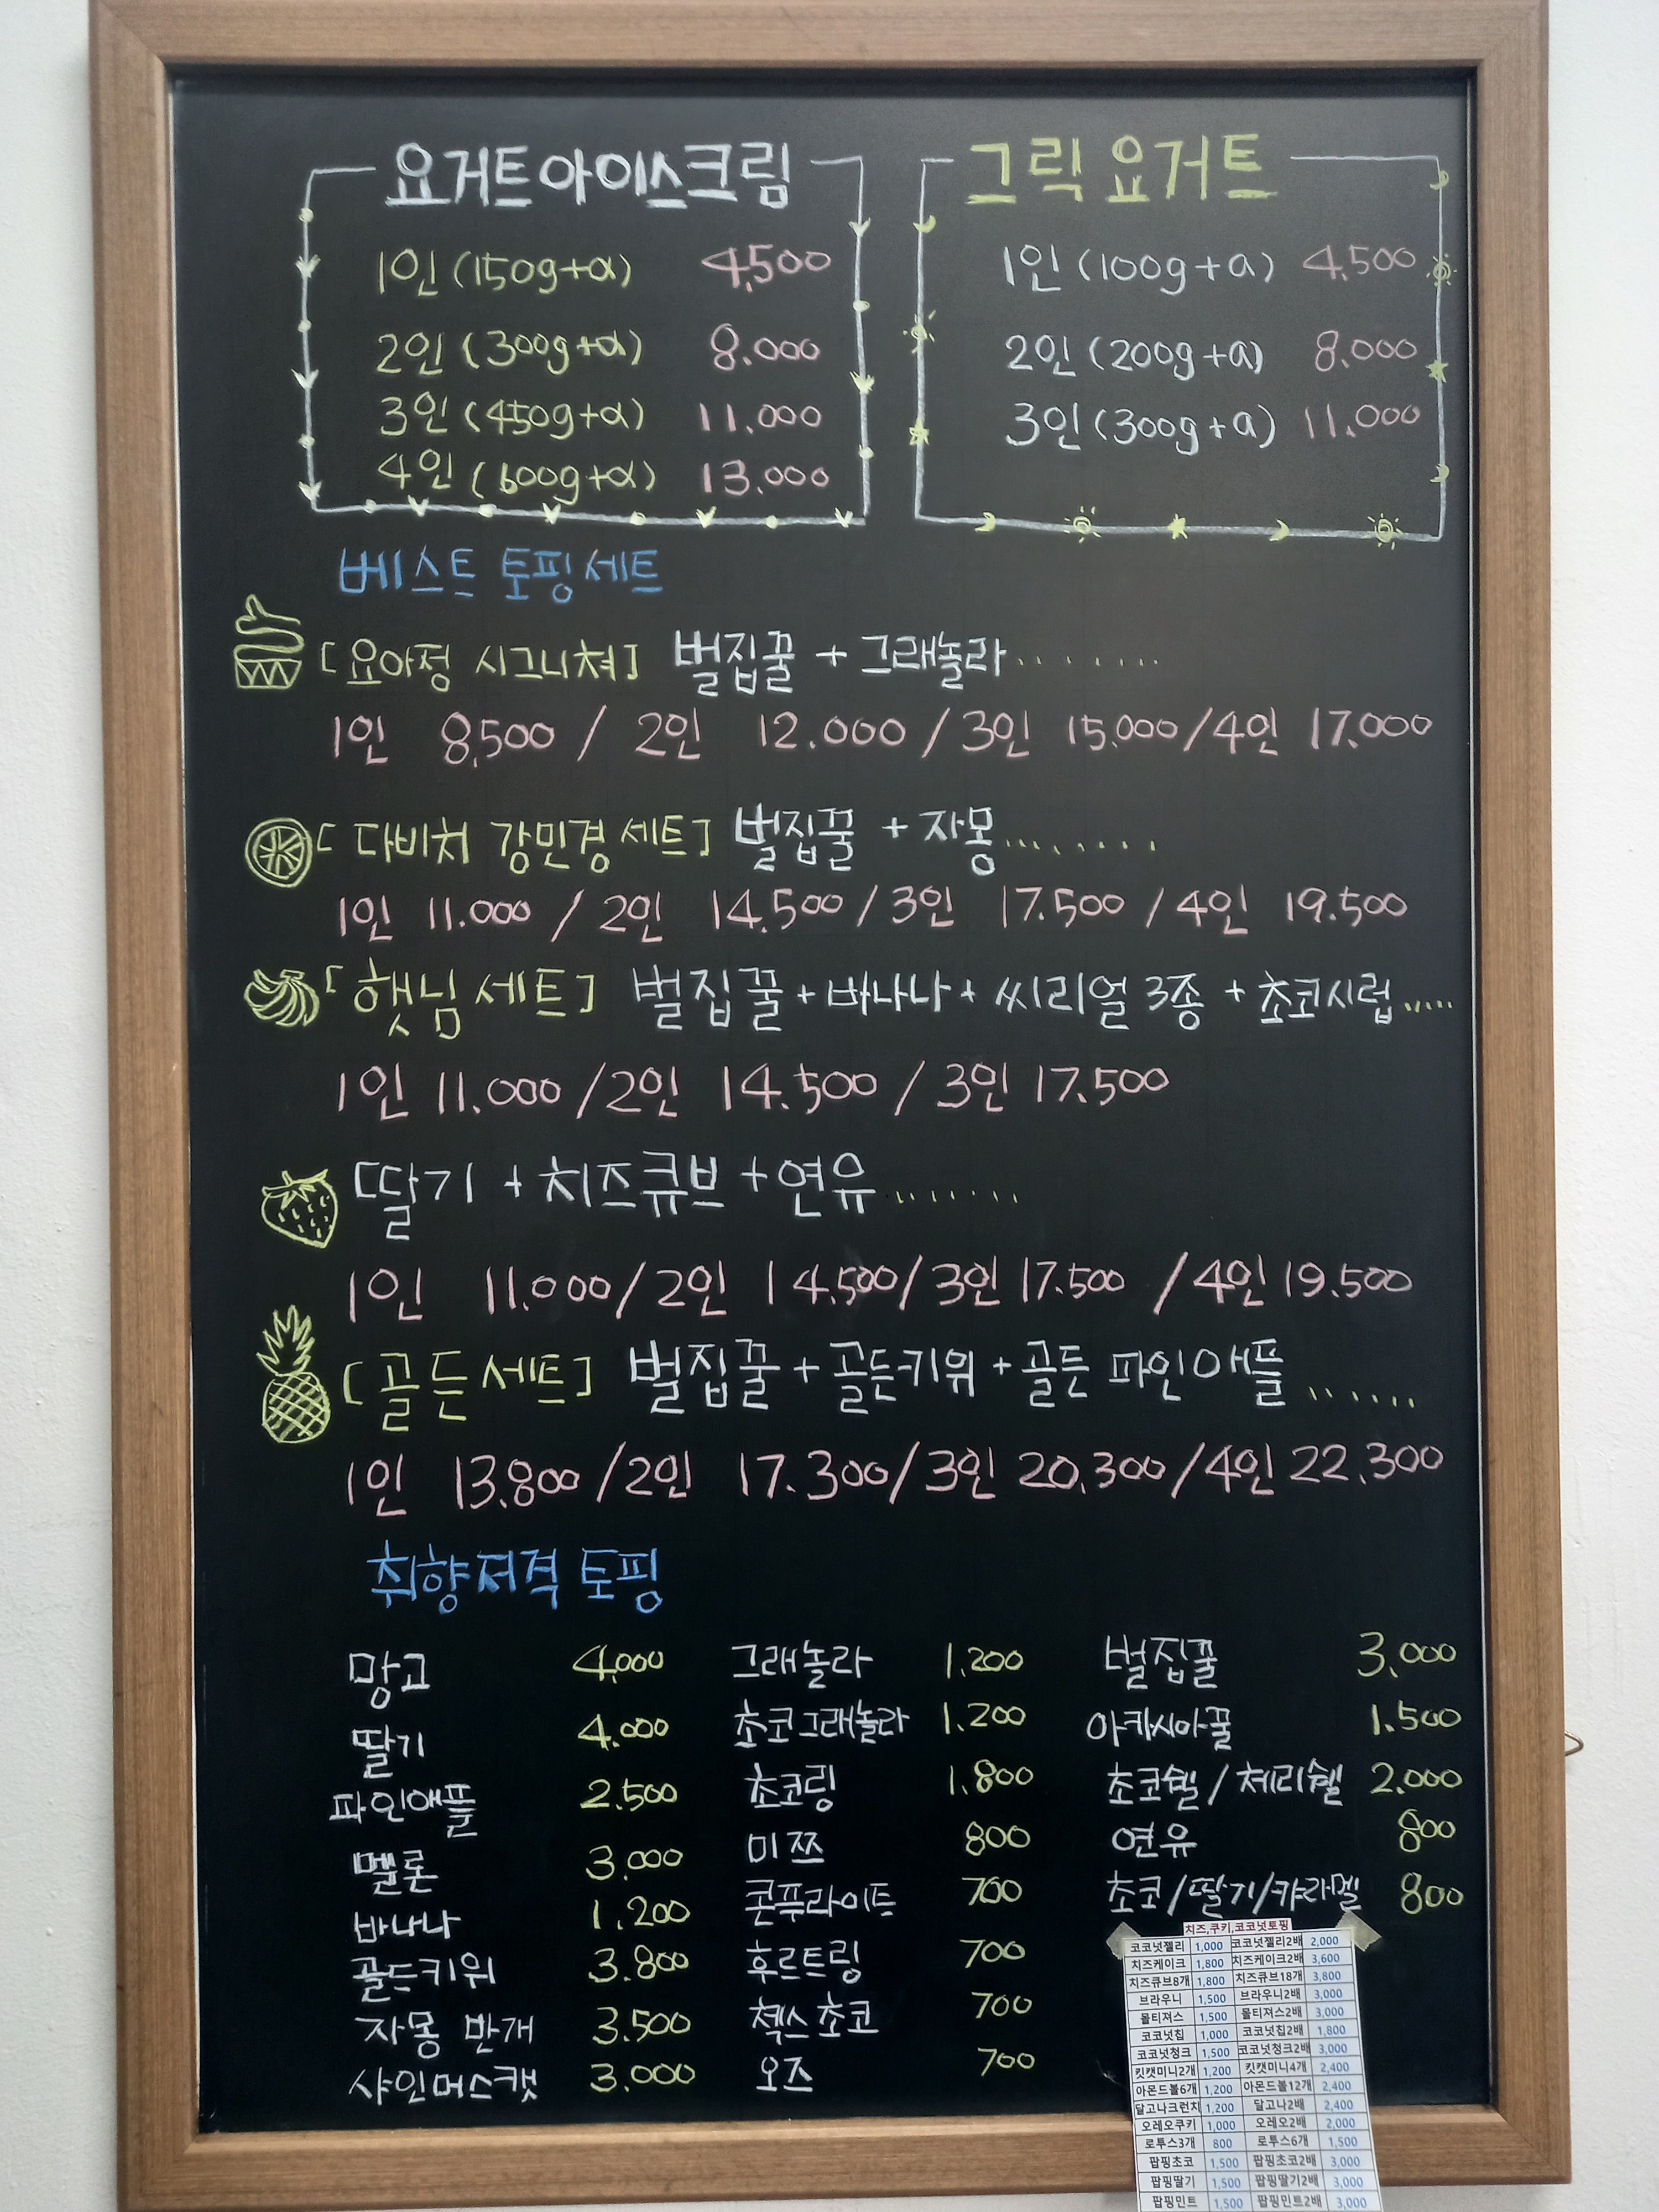 요거트아이스크림
1인 (150g+α) 4,500
2인 (300g+α) 8.000
3인 (450g+α) 11.000
4인 (600g+α) 13.000
그릭 요거트
1인 (100g+a) 4.500
2인 (200g+a) 8.000
3인 (300g+a) 11.000
베스트 토핑세트
[요아정 시그니쳐] 벌집꿀 + 그래놀라........
1인 8,500 / 2인 12.000 / 3인 15.000 / 4인 17.000
[다비치 강민경 세트] 벌집꿀 + 자몽........
1인 11.000 / 2인 14.500 / 3인 17.500 / 4인 19.500
[햇님 세트] 벌집꿀 + 바나나 + 씨리얼 3종 + 초코시럽.....
1인 11.000 / 2인 14.500 / 3인 17.500
[딸기 + 치즈큐브 + 연유........
1인 11.000 / 2인 14.500 / 3인 17.500 / 4인 19.500
[골든세트] 벌집꿀 + 골든키위 + 골든 파인애플......
1인 13.800 / 2인 17.300 / 3인 20.300 / 4인 22.300
취향저격 토핑
망고 4,000
딸기 4.000
파인애플 2.500
멜론 3.000
바나나 1.200
골드키위 3.800
자몽 반개 3.500
샤인머스캣 3.000
그래놀라 1.200
초코그래놀라 1.200
초코링 1.800
미쯔 800
콘푸라이트 700
후르트링 700
첵스초코 700
오즈 700
벌집꿀 3.000
아카시아꿀 1.500
초코쉘 / 체리쉘 2.000
연유 800
초코/딸기/캬라멜 800
치즈,쿠키,코코넛토핑
코코넛젤리 1,000 코코넛젤리2배 2,000
치즈케이크 1,800 치즈케이크2배 3,600
치즈큐브8개 1,800 치즈큐브18개 3,800
브라우니 1,500 브라우니2배 3,000
몰티져스 1,500 몰티져스2배 3,000
코코넛칩 1,000 코코넛칩2배 1,800
코코넛청크 1,500 코코넛청크2배 3,000
킷캣미니2개 1,200 킷캣미니4개 2,400
아몬드볼6개 1,200 아몬드볼12개 2,400
달고나크런치 1,200 달고나2배 2,400
오레오쿠키 1,000 오레오2배 2,000
로투스3개 800 로투스6개 1,500
팝핑초코 1,500 팝핑초코2배 3,000
팝핑딸기 1,500 팝핑딸기2배 3,000
팝핑민트 1,500 팝핑민트2배 3,000